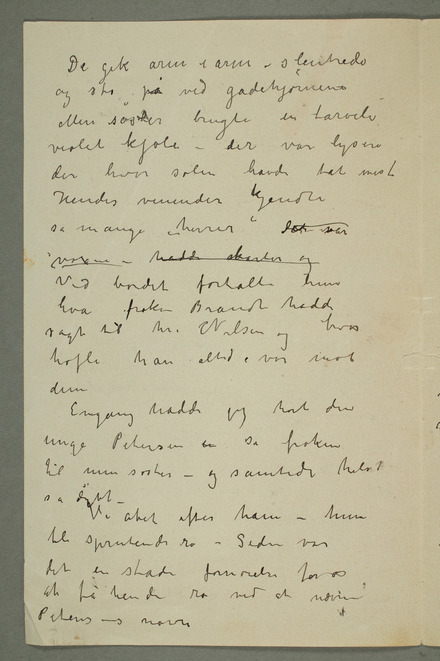 De gik arm i arm – slentrede
og sto på ved gadehjørnene
Men søster brugte en tarvelig
violet kjole – der var lysere
der hvor solen havde tat mest
Hendes veninder kjendte
så mange "herrer" det var
voxne – hadde skorter og
Ved bordet fortalte hun
hva frøken Brandt hadde
sagt til hr. Nilsen og hvor
høfli han altid var mot
dem
Engang hadde jeg hørt den
unge Petersen sa frøken
til min søster – og samtidi hilst
så dypt –
Vi apet efter ham – hun
ble sprutende rø – Siden var
det en stadi fornøielse for os
at få hende rø ved at nævne
Petersens navn